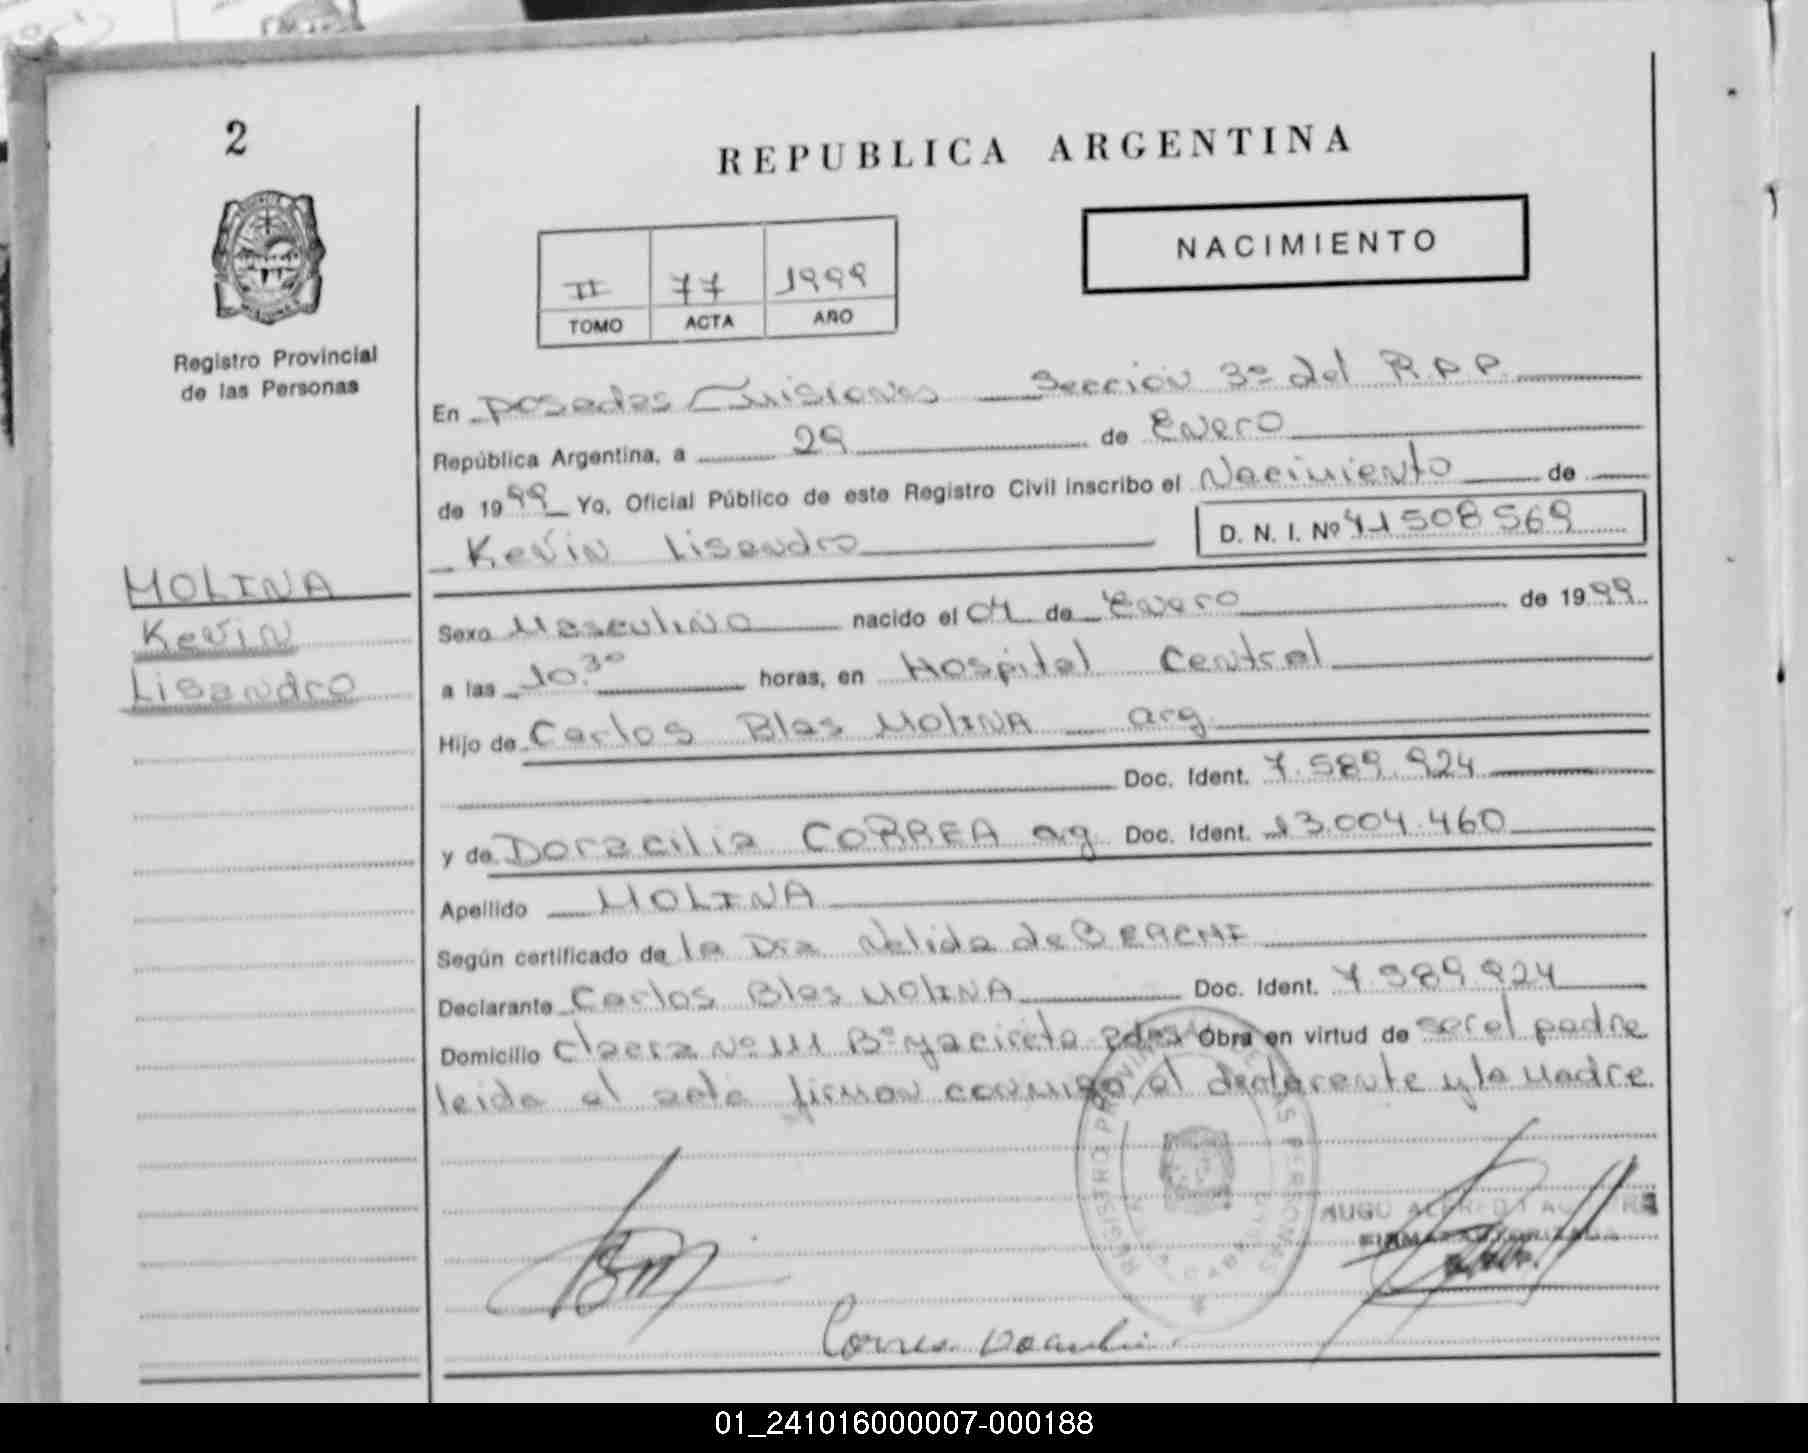 2
REPUBLICA ARGENTINA
NACIMIENTO
II 77 1999
TOMO ACTA AÑO
Registro Provincial
de las Personas
En Posadas Misiones Sección 3º del R.P.P.
República Argentina, a 29 de Enero
de 1999 Yo, Oficial Público de este Registro Civil inscribo el Nacimiento de
Kevin Lisandro D. N. I. Nº 41508569
MOLINA
Kevin
Lisandro
Sexo Masculino nacido el 04 de Enero de 1999
a las 10.30 horas, en Hospital Central
Hijo de Carlos Blas MOLINA arg.
Doc. Ident. 7.589.924
y de Doracilia CORREA arg. Doc. Ident. 13.004.460
Apellido MOLINA
Según certificado de la Dra Nelida de
Declarante Carlos Blas MOLINA Doc. Ident. 7.589.924
Domicilio Nº Bº Yacireta Pdas Obra en virtud de ser el padre
leida el acta firman conmigo el declarante y la Madre
REGISTRO PROVINCIAL DE LAS PERSONAS
HUGO ALFREDO
FIRMA AUTORIZADA
01_241016000007-000188